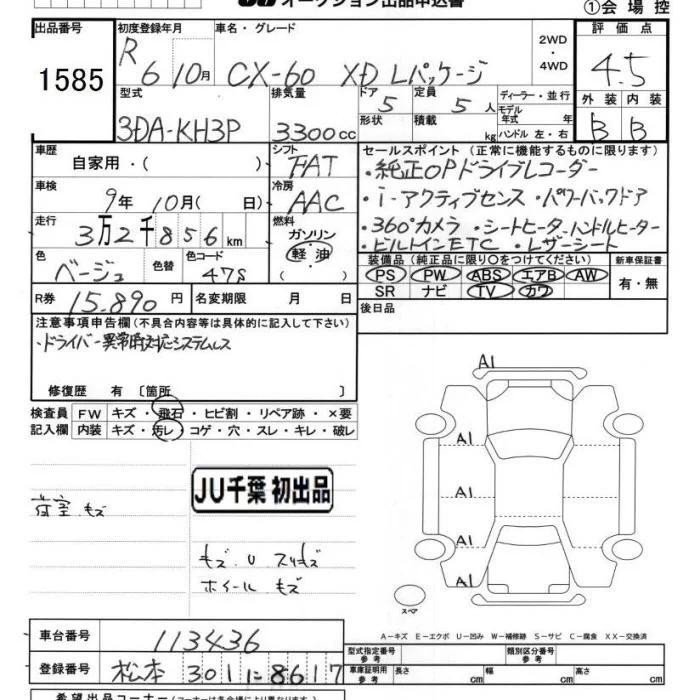 オークション出品申込書
①会場控
出品番号
初度登録年月
車名・グレード
2WD・4WD
評価点
1585
R 6 10月
CX-60 XD Lパッケージ
4.5
型式
排気量
ドア 5
定員 5 人
ディーラー・並行
外装 内装
3DA-KH3P
3300 cc
形状
積載 kg
モデル年式 年
ハンドル 左・右
B B
車歴
自家用・( )
シフト
FAT
セールスポイント (正常に機能するものに限ります)
・純正OPドライブレコーダー
車検
9年 10月( 日)
冷房
AAC
・i-アクティブセンス ・パワーバックドア
走行
3万2千856km
燃料
ガソリン
軽油
( )
・360°カメラ ・シートヒータ ハンドルヒーター
・ビルトインETC ・レザーシート
色
ベージュ
色替
色コード
47S
装備品 (純正品に限り○をつけてください)
新車保証書
PS PW ABS エアB AW
有・無
SR ナビ TV カワ
R券 15.890 円
名変期限 月 日
後日品
注意事項申告欄 (不具合内容等は具体的に記入して下さい)
・ドライバー異常時対応システムレス
修復歴 有 〔箇所 〕
検査員 FW キズ・飛石・ヒビ割・リペア跡・×要
記入欄 内装 キズ・汚レ・コゲ・穴・スレ・キレ・破レ
A1
A1
A1
A1
A1
JU千葉 初出品
荷室 キズ
キズ U スリキズ
ホイール キズ
スペア
A−キズ E−エクボ U−凹み W−補修跡 S−サビ C−腐食 XX−交換済
車台番号
113436
型式指定番号 参考
類別区分番号 参考
登録番号
松本 301 に 8617
車庫証明用 参考
長さ cm
幅 cm
高さ cm
希望出品コーナー